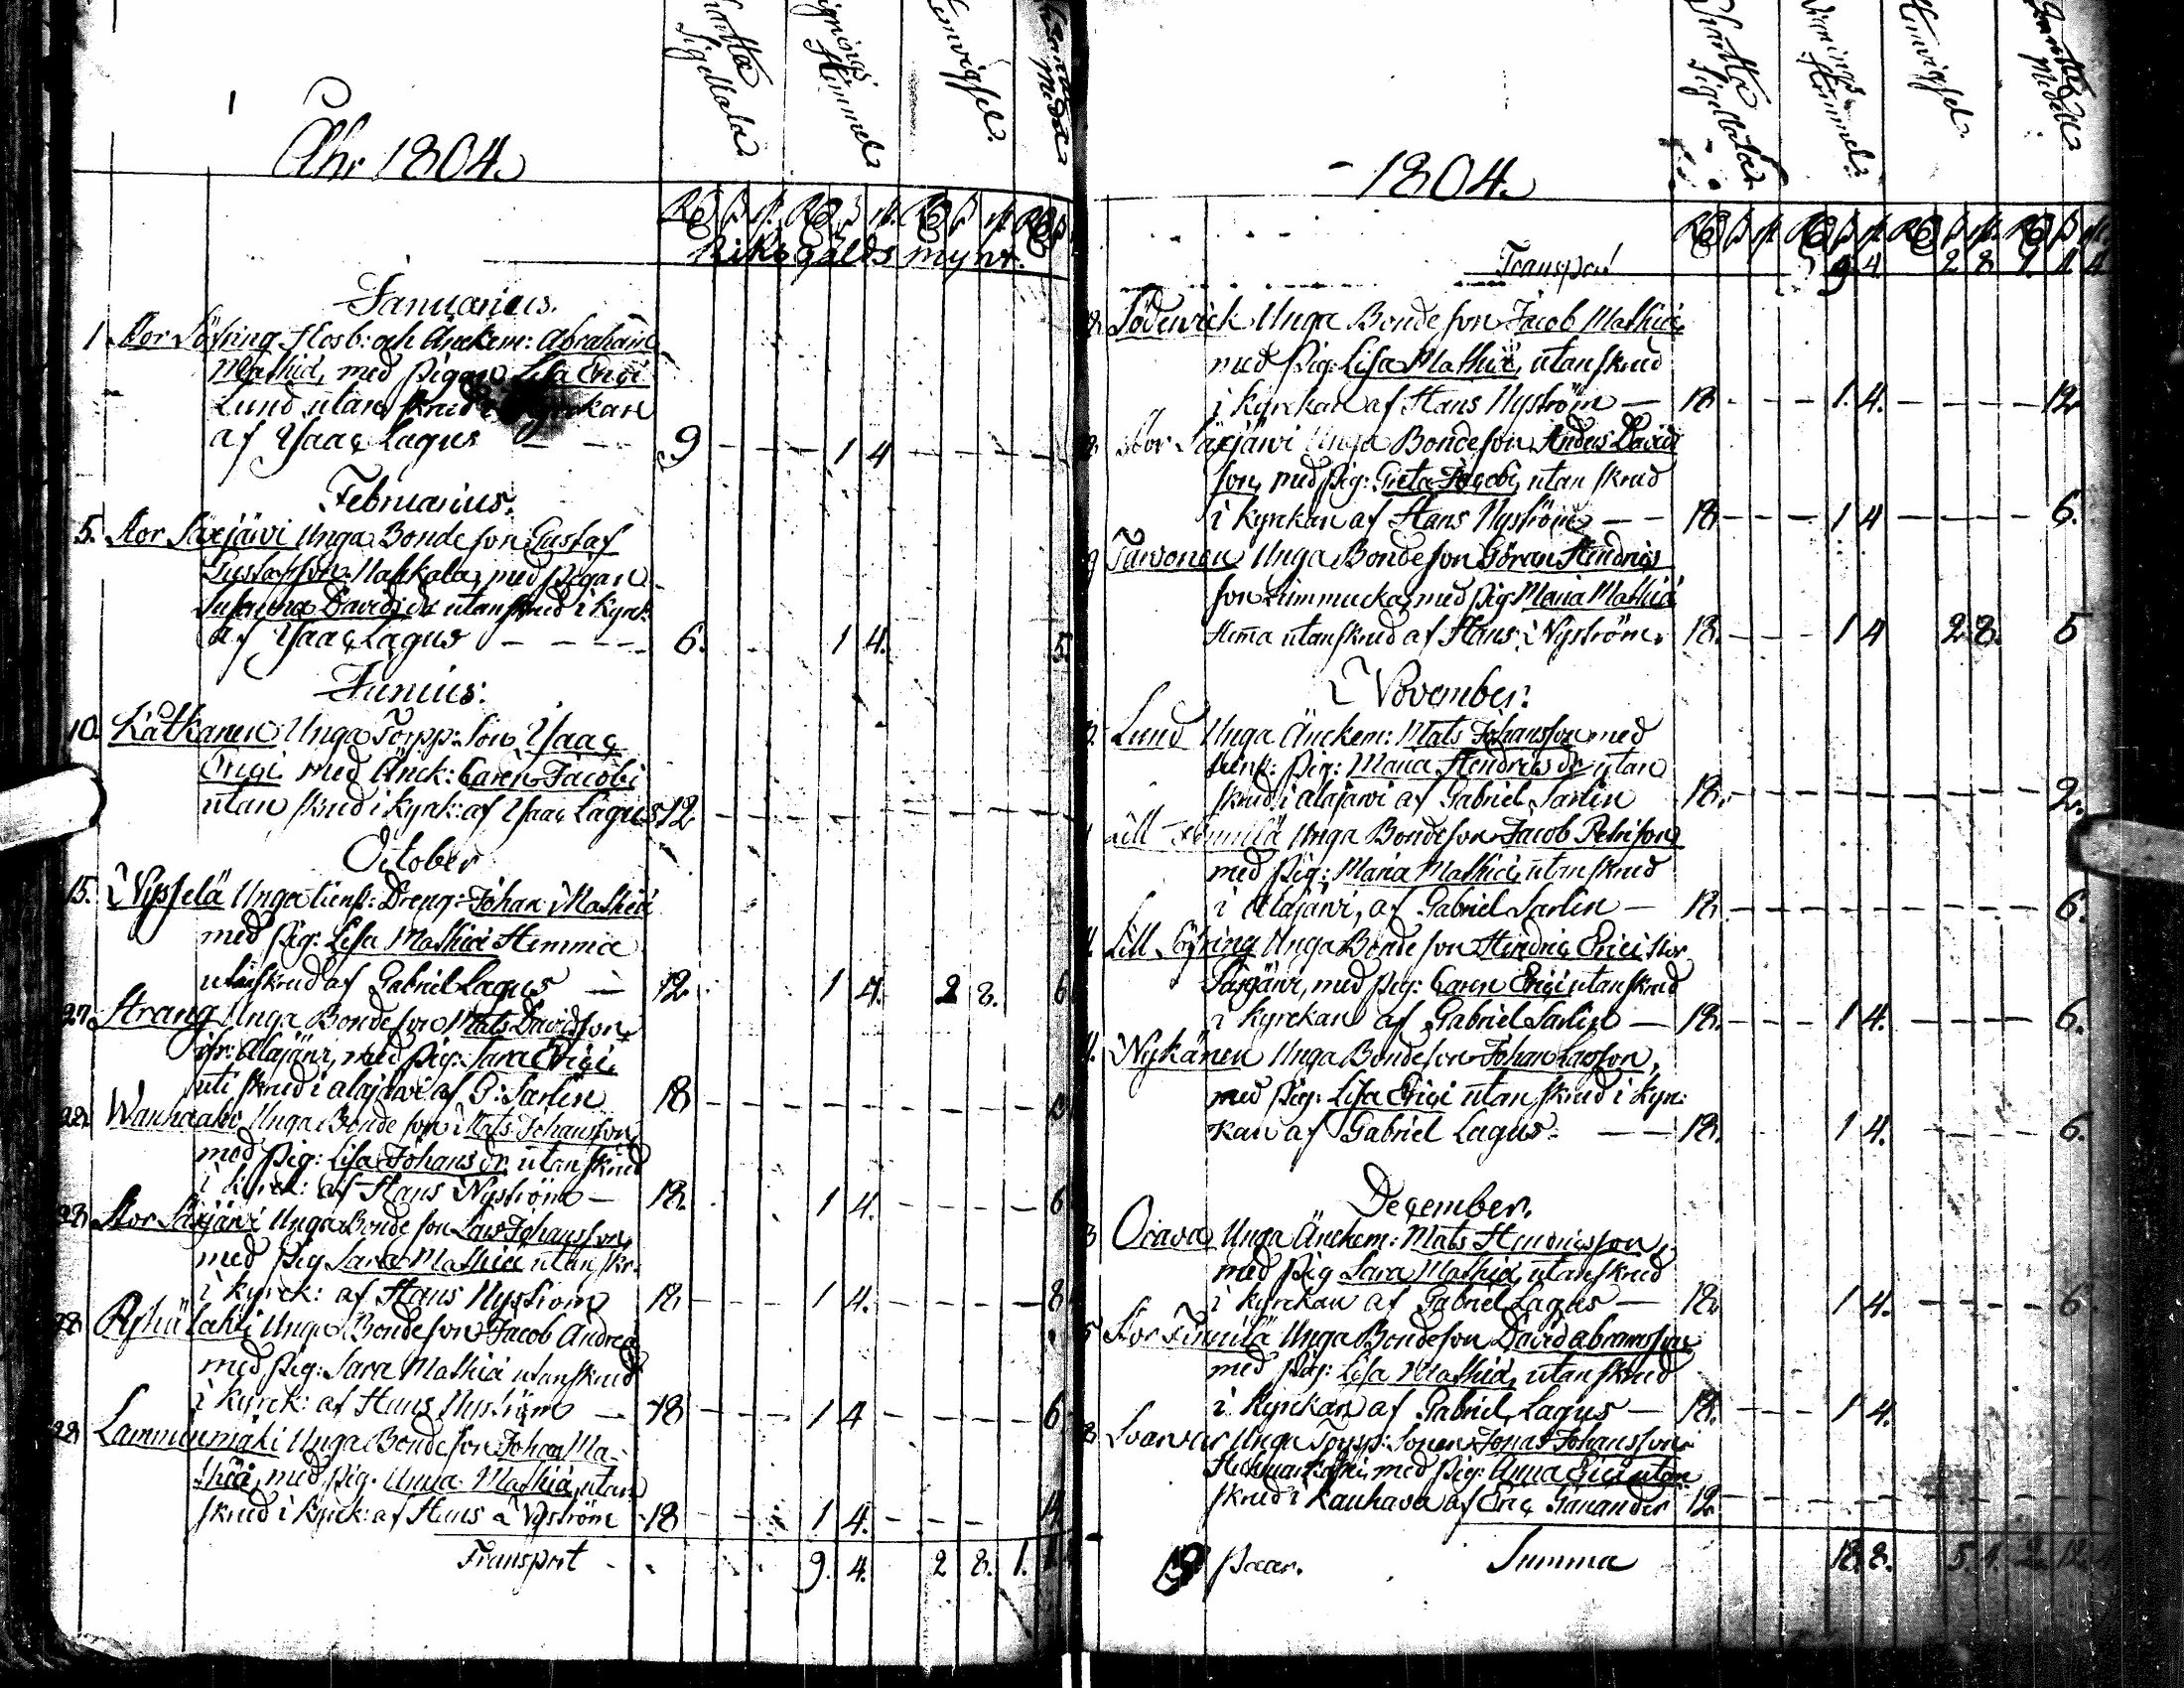 1
Åhr 1804.
Charttæ Sigillatæ
Wignings Himmel
Hemvigsel.
Samlte Medel
Rd ß rst. Rd ß rst. Rd ß rst. Rd ß
Riksgälds mynt.
Januarius.
1. Stor Löfring Hosb: och Änckem: Abraham
Mathiæ, med pigan Lisa Erici
Lund utan skrud i Kyrckan
af Ysaac Lagus — — 9 — — — 1 4 — — — —
Februarius.
5. Stor Säxjärvi Unga Bonde son Gustaf
Gustafsson med pigan
Susanna Davids dr utan skrud i Kyrck:
af Ysaac Lagus — — — — 6. 1 4. 5.
Junius.
10. Kätkänen Unga Torpp: Son Ysaac
Erici med Änck: Caren Jacobi
utan skrud i Kyrk: af Ysaac Lagus 12 — — — — — — — —
October
15. Nisselä Unga tienst: Dreng: Johan Mathiæ
med pig: Lisa Mathiæ Hemma
utanskrud af Gabriel Lagus — 12. 1 4. 2 8. 6
27. Strang Unga Bonde son Mats Davidsson
ifr: Alajärvi, med pig: Sara Erici
uti skrud i alajärvi af G: Sarlin 18 — — — — — — — —
28. Wanhaaho Unga Bonde son Mats Johansson
med pig: Lisa Johans dr utan skrud
i Kyrck: af Hans Nyström — 18. 1 4. — — — 6
28. Stor Säxjärvi Unga Bonde son Lars Johansson,
med pig Sara Mathiæ utan skr:
i Kyrck: af Hans Nyström 18 — — — 1 4. — — — — 8
28. Unga Bonde son Jacob Andreæ
med pig: Sara Mathiæ utanskrud
i Kyrck: af Hans Nyström — 18 — — — 1 4 — — — — 6
28. Lamminmäki Unga Bonde son Johan Ma-
thiæ, med pig. Anna Mathiæ, utan
skrud i Kyrck: af Hans Nyström 18 1 4. — — — 4
Transport 9. 4. 2 8. 1. 1
1804.
Charttæ Sigillatæ
Wignings Himmel.
Hemvigsel.
Samlte Medel
Rd ß rst. Rd ß rst. Rd ß rst. Rd ß rst.
Transport 9 4. 2 8. 1. 1 4
Söderwick Unga Bonde son Jacob Mathiæ,
med pig: Lisa Mathiæ, utan skrud
i Kyrckan af Hans Nyström — 18 — — — 1. 4. — — — — 12
Stor Säxjärvi Unga Bonde son Anders Davids
son, med pig: Greta Jacobi, utan skrud
i Kyrckan af Hans Nyström — — 18 — — — 1 4 — — — — 6.
9 Tarvonen Unga Bonde son Göran Hindrics
son Limmucka, med pig: Maria Mathiæ
Hema utan skrud af Hans Nyström. 18. — — — 1 4 2 8. 5
November.
Lund Unga Änckem: Mats Johansson med
tienst: pig: Maria Hendrics dr utan
skrud i alajärvi af Gabriel Sarlin 18. — — — — — — — — 2.
Lill Finnilä Unga Bonde son Jacob Petrisson
med pig: Maria Mathiæ, utan skrud
i Alajärvi, af Gabriel Sarlin — 18 — — — — — — — — 6.
4. Lill Löfring Unga Bonde son Hindric Erici Stor
Säxjärvi, med pig: Caren Erici utan skrud
i Kyrckan af Gabriel Sarlin — 18. — — — 1 4. — — — 6.
4. Nykänen Unga Bonde son Johan Larsson,
med pig: Lisa Erici utan skrud i Kyr-
kan af Gabriel Lagus. — — 18. 1 4. — — — — 6.
December.
3 Orava Unga Änckem: Mats Hindricsson,
med pig Sara Mathiæ, utan skrud
i Kyrckan af Gabriel Lagus — 18. 1 4. — — — — 6
5 Stor Finnilä Unga Bonde son David abramsson
med pig: Lisa Mathiæ, utan skrud
i Kyrckan af Gabriel Lagus — 18. — — — 1 4.
8 Loarvar Unga Torpp: Sonen Jonas Johansson
med pig: Anna Erici utan
skrud i Kauhava af Eric Ganander 12 — — — — — — — —
19 paar. Summa 18. 8. 5. 4. 2. 12.